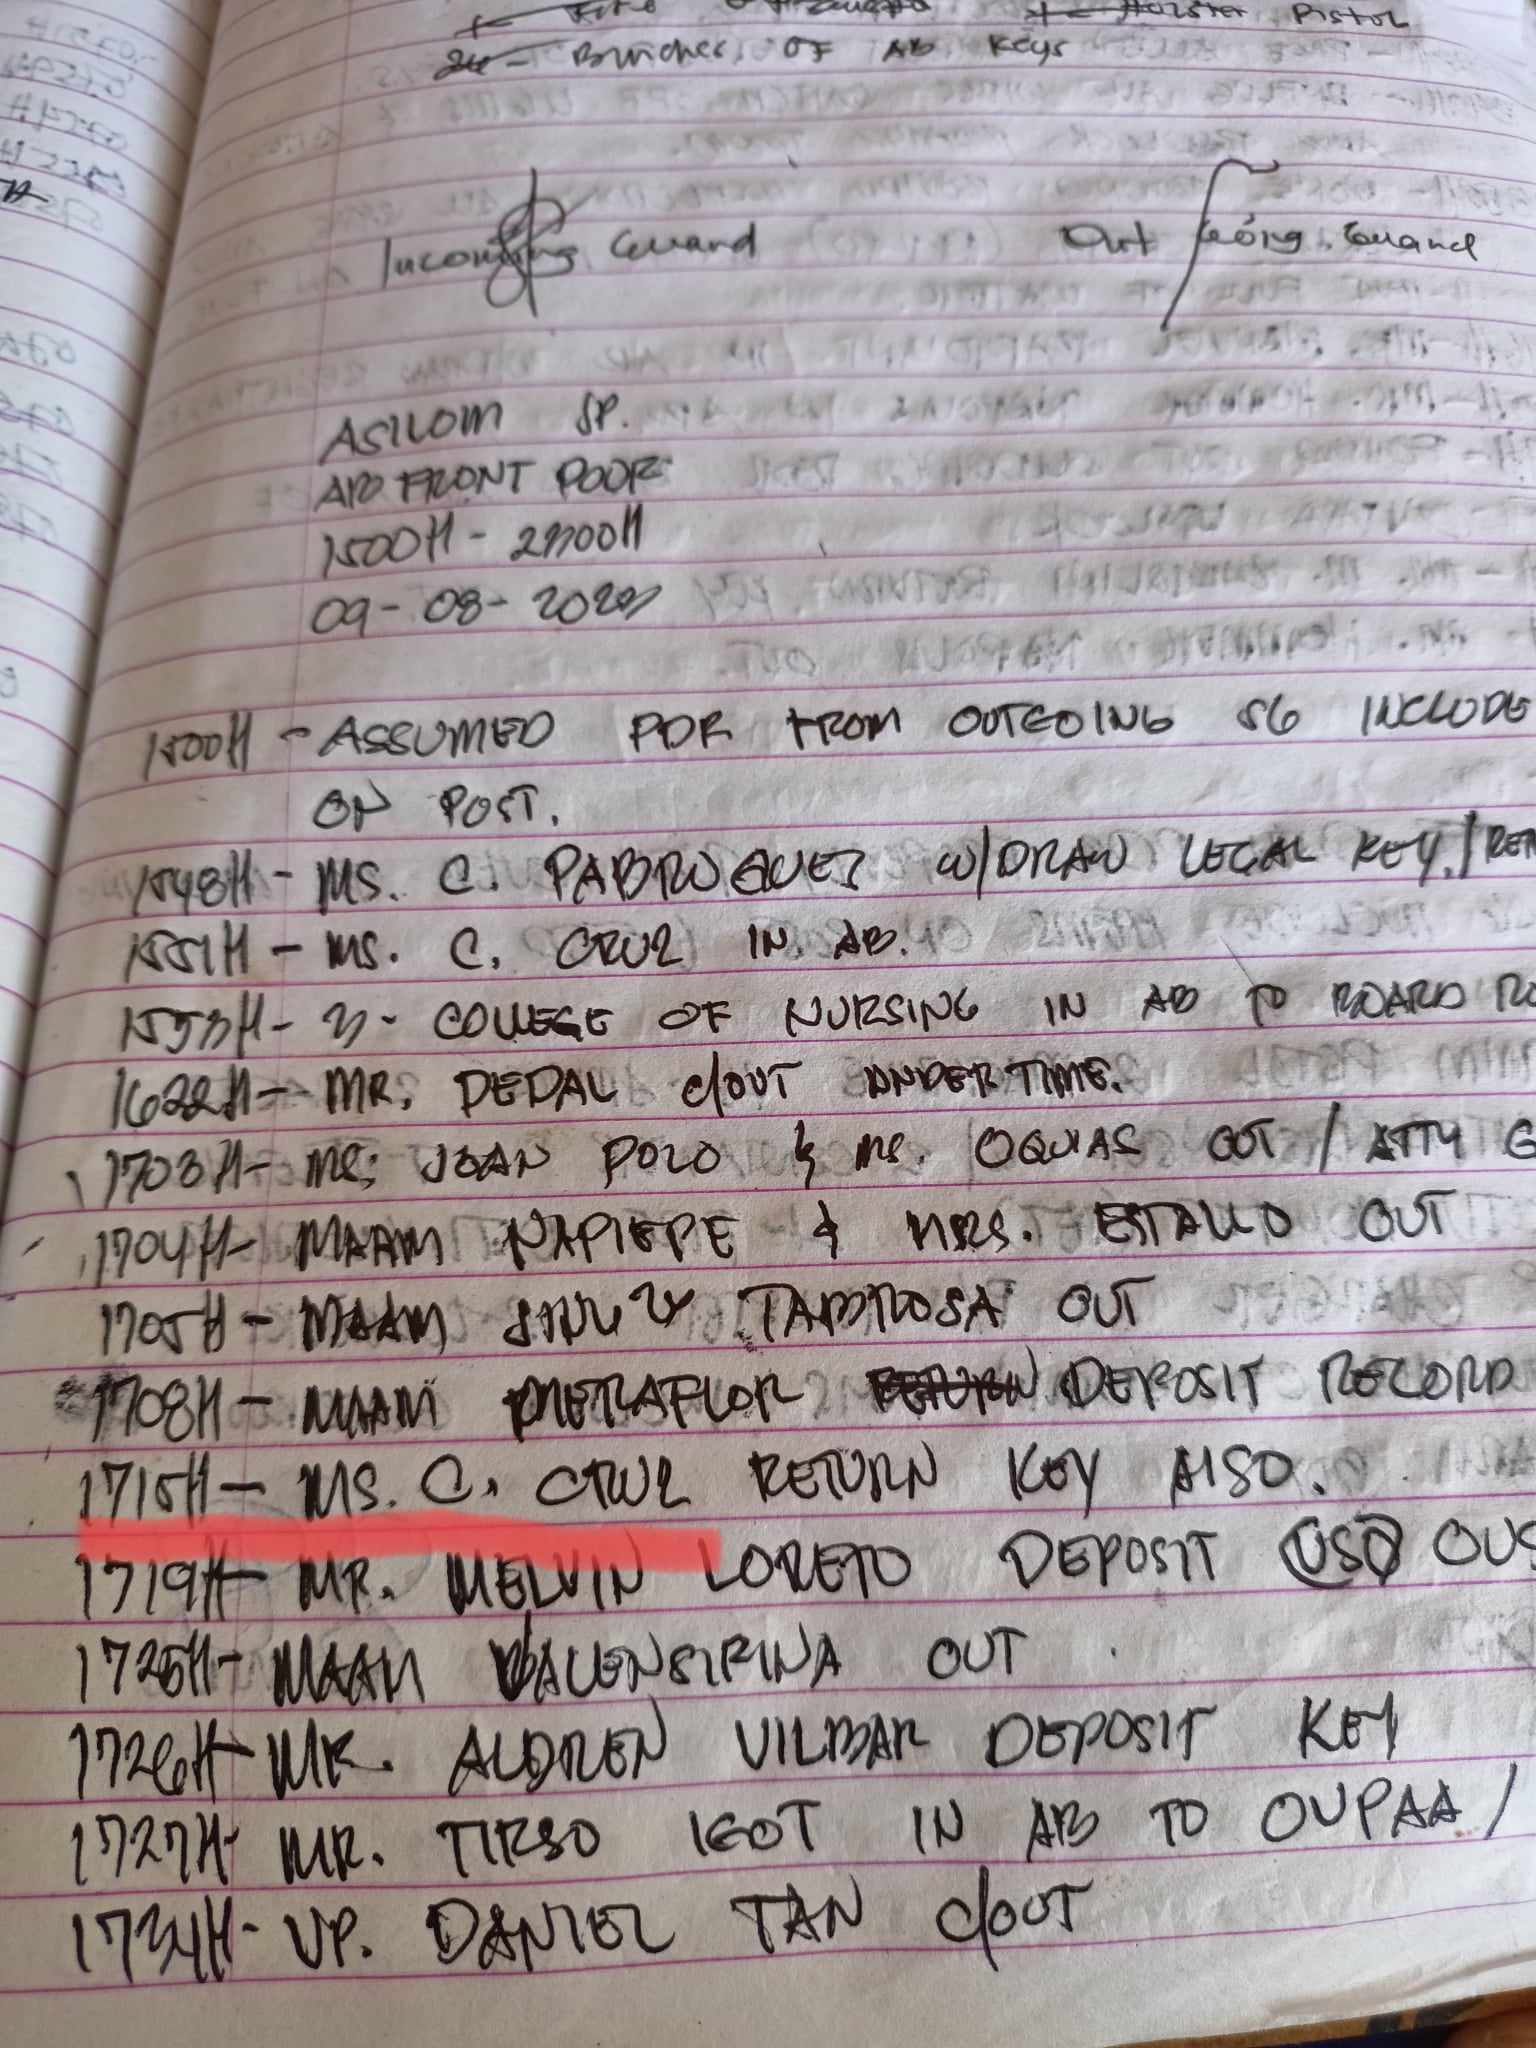 Pistol
Bunches of AB Keys
Incoming Guard Out Going Guard
ASILOM SP.
AB FRONT DOOR
1500H - 2300H
09-08-2023
1500H - ASSUMED PDR FROM OUTGOING SG INCLUDE
ON POST.
1548H - MS. C. W/DRAW LEGAL KEY. / RET
1551H - MS. C. CRUZ IN AB.
1553H - 3 - COLLEGE OF NURSING IN AB TO BOARD RO
1622H - MR. DEDAL C/OUT UNDERTIME.
1703H - MS. JOAN POLO & MS. OQUIAS OUT / ATTY G
1704H - MAAM & MRS. ESTALLO OUT
1705H - MAAM TAMBROSA OUT
1708H - MAAM MIRAFLOR RETURN DEPOSIT RECORD
1715H - MS. C. CRUZ RETURN KEY ALSO.
1719H - MR. MELVIN LORETO DEPOSIT USO OUS
1725H - MAAM OUT
1726H - MR. ALDREN VILBAR DEPOSIT KEY
1727H - MR. TIRSO IGOT IN AB TO OVPAA /
1734H - VP. DANIEL TAN C/OUT